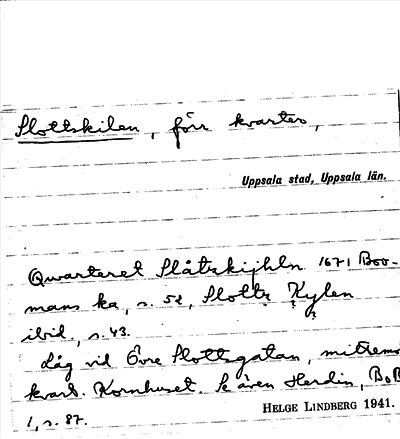 Slottskilen, förr kvarter,
Uppsala stad, Uppsala län.
Qwarteret Slåtzkijhln 1671 Boo-
mans ka, s. 52, Slotts Kylen
ibid, s. 43.
Låg vid Övre Slottsgatan, mitemot
kvart. Kornhuset. Se även Herdin, BoB
1, s. 87.
HELGE LINDBERG 1941.